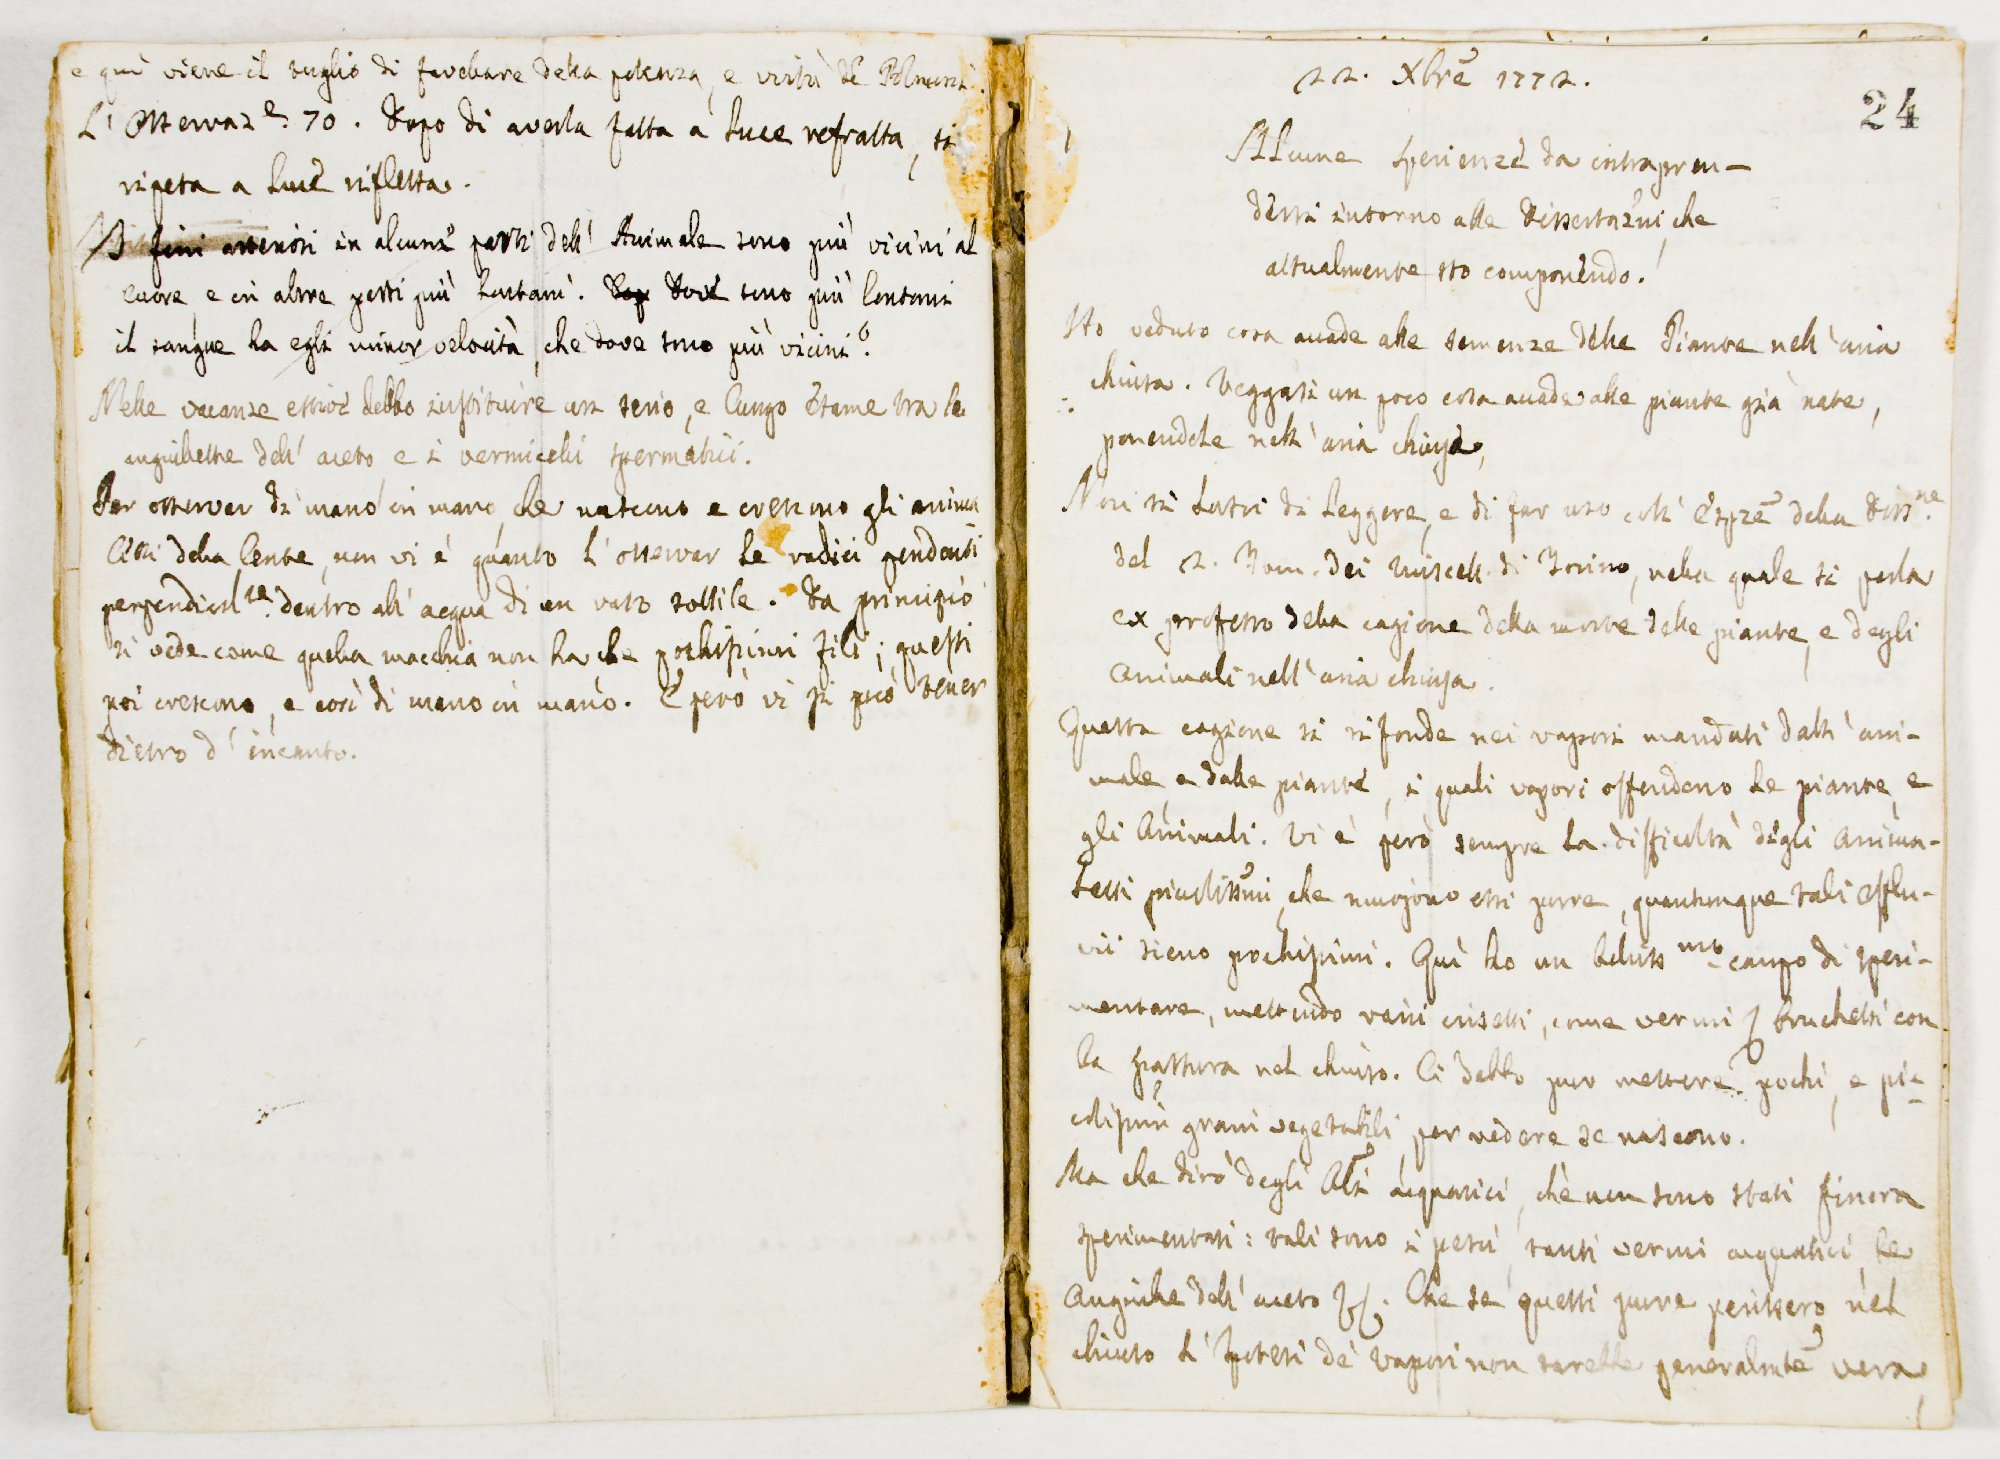 e quì viene il taglio di favellare della potenza, e virtù de' Polmoni.
L' Osservaz.e 70. Dopo di averla fatta a luce refratta, si
ripeta a luce riflessa.
I fini arteriosi in alcune parti dell' Animale sono più vicini al
cuore, e in altre parti più lontani. Dove sono più lontani
il sangue ha egli minor velocità, che dove sono più vicini?
Nelle vacanze estive debbo instituire un serio, e lungo esame tra le
anguillette dell' aceto e i vermicelli spermatici.
Per osservar di mano in mano che nascono e crescono gli anima
letti della lente, non vi è quanto l' osservar le radici pendenti
perpendicol.te dentro all' acqua di un vaso sottile. Da principio
si vede come quella macchia non ha che pochissimi fili; questi
poi crescono, e così di mano in mano. E però vi si può tener
dietro d' incanto.
22. Xbre 1772.
24
Alcune sperienze da intrapren-
dersi intorno alle Dissertazni, che
attualmente sto componendo.
Ho veduto cosa accade alle semenze delle Piante nell' aria
chiusa. Veggasi un poco cosa accada alle piante già nate,
ponendole nell' aria chiusa.
Non si lasci di leggere, e di far uso coll' esprze della Diss.ne
del 2. Tom. dei Miscell. di Torino, nella quale si parla
ex professo della cagione della morte delle piante, e degli
animali nell' aria chiusa.
Questa cagione si rifonde nei vapori mandati dall' ani-
male, e dalle piante, i quali vapori offendono le piante, e
gli Animali. Vi è però sempre la difficoltà degli anima-
letti piccolissmi, che muojono essi pure, quantunque tali efflu-
vii sieno pochissimi. Quì ho un belliss.mo campo di speri-
mentare, mettendo varii insetti, come vermi, bruchetti con
la pastura nel chiuso. Ci debbo pur mettere pochi, e pic-
colissimi grani vegetabili per vedere se nascono.
Ma che dirò degli Ali acquatici, che non sono stati finora
sperimentati: tali sono i pesci, tanti vermi acquatici, le
anguille dell' aceto &c. Che se questi pure perissero nel
chiuso l' Ipotesi de' vapori non sarebbe generalmte vera,